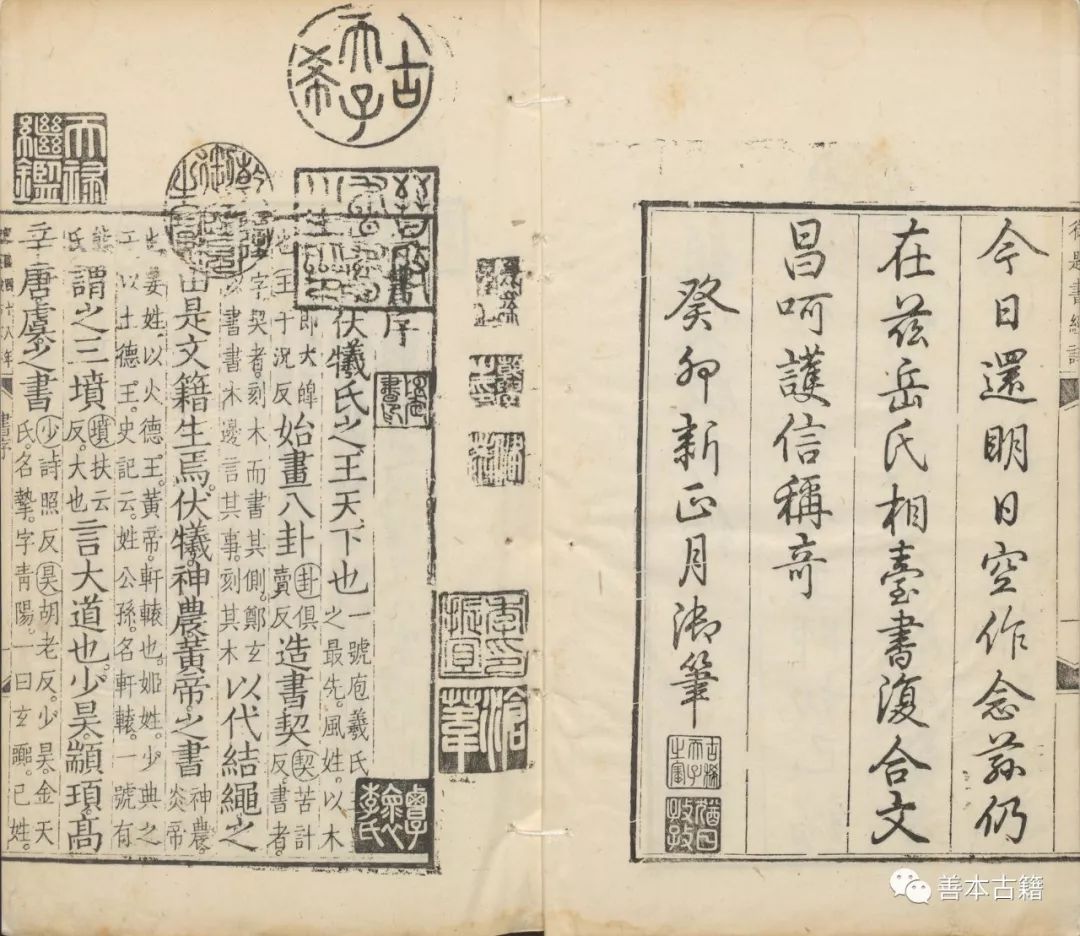 題書經詩
今日還明日空作念茲仍
在茲岳氏相臺書復合文
昌呵護信稱奇
癸卯新正月御筆
古稀天子之寶
猶日孜孜
古稀天子
天祿繼鑑
乾隆御覽之寶
李振宜印
滄葦
書序
伏犧氏之王天下也一號庖羲氏之最先風姓以木
即大皞也王于況反始畫八卦卦俱賣反造書契契苦計反書者
字契者刻木而書其側鄭玄書書木邊言其事刻其木以代結繩之
由是文籍生焉。伏犧神農黃帝之書神農。炎帝
也姜姓。以火德王。黃帝。軒轅也。姬姓。少典之子以土德王。史記云。姓公孫。名軒轅。一號有
熊氏謂之三墳墳扶云反。大也言大道也。少昊。顓頊。高
辛唐虞之書少詩照反昊胡老反。少昊。金天氏。名摯。字青陽。一曰玄囂。己姓。
書序
善本古籍